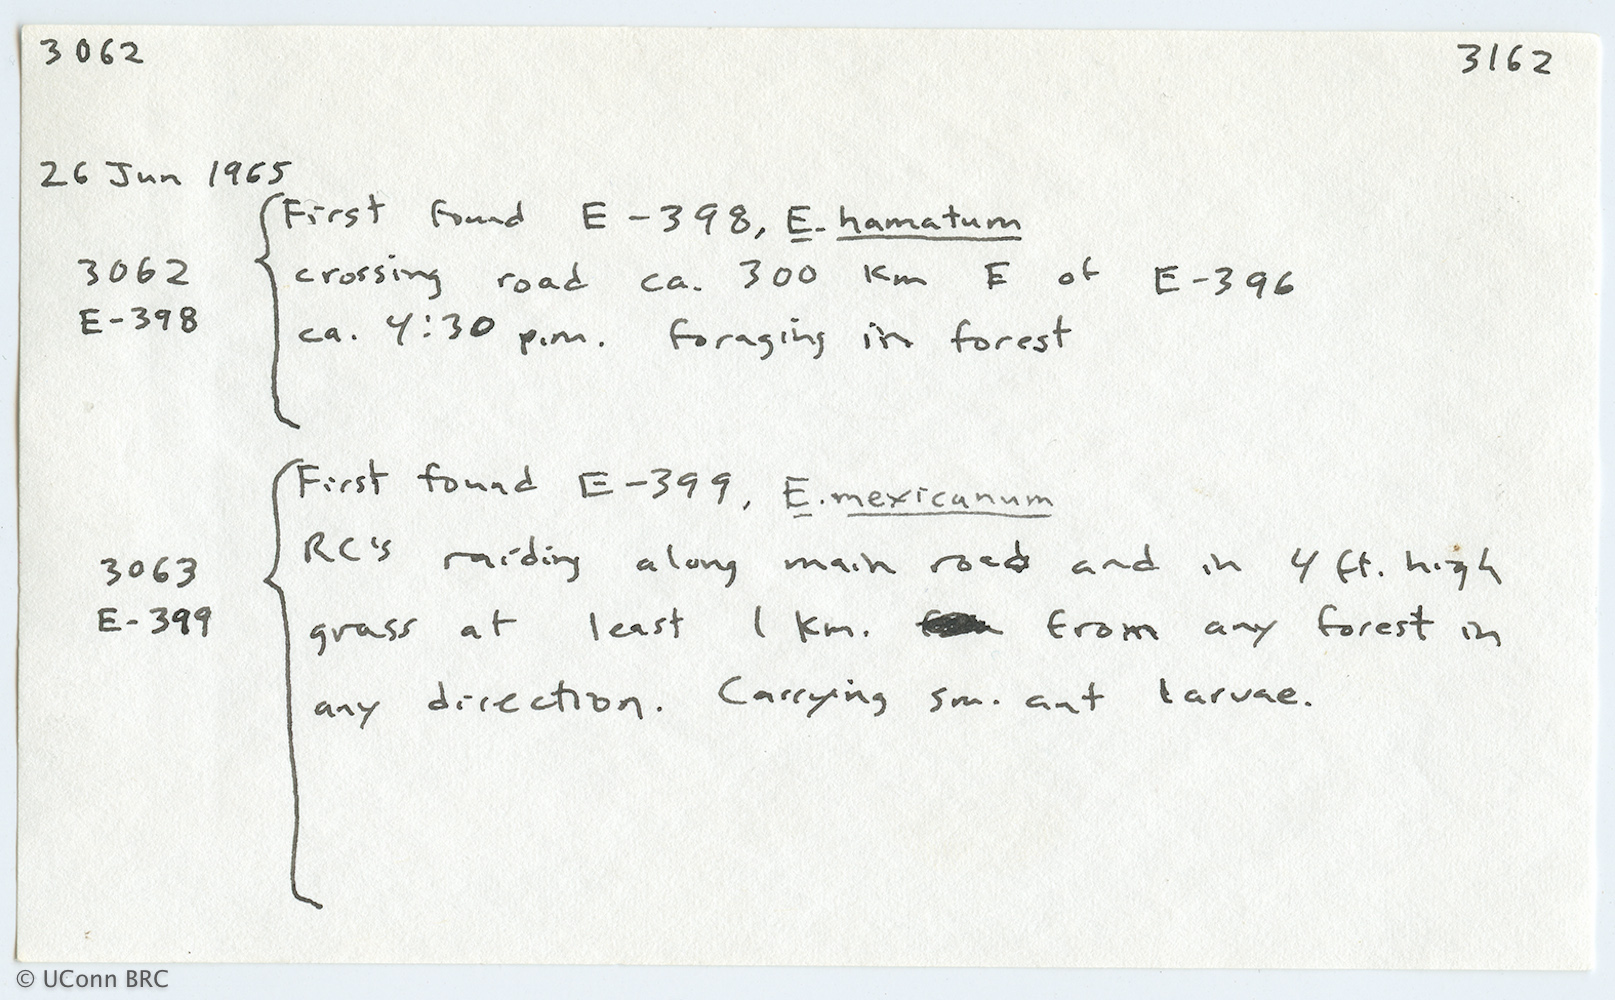 3062 3162
26 Jun 1965
First found E-398, E. hamatum
3062 crossing road ca. 300 km E of E-396
E-398 ca. 4:30 p.m. foraging in forest
First found E-399, E. mexicanum
3063 RC's raiding along main road and in 4 ft. high
E-399 grass at least 1 km. from any forest in
any direction. Carrying sm. ant larvae.
© UConn BRC